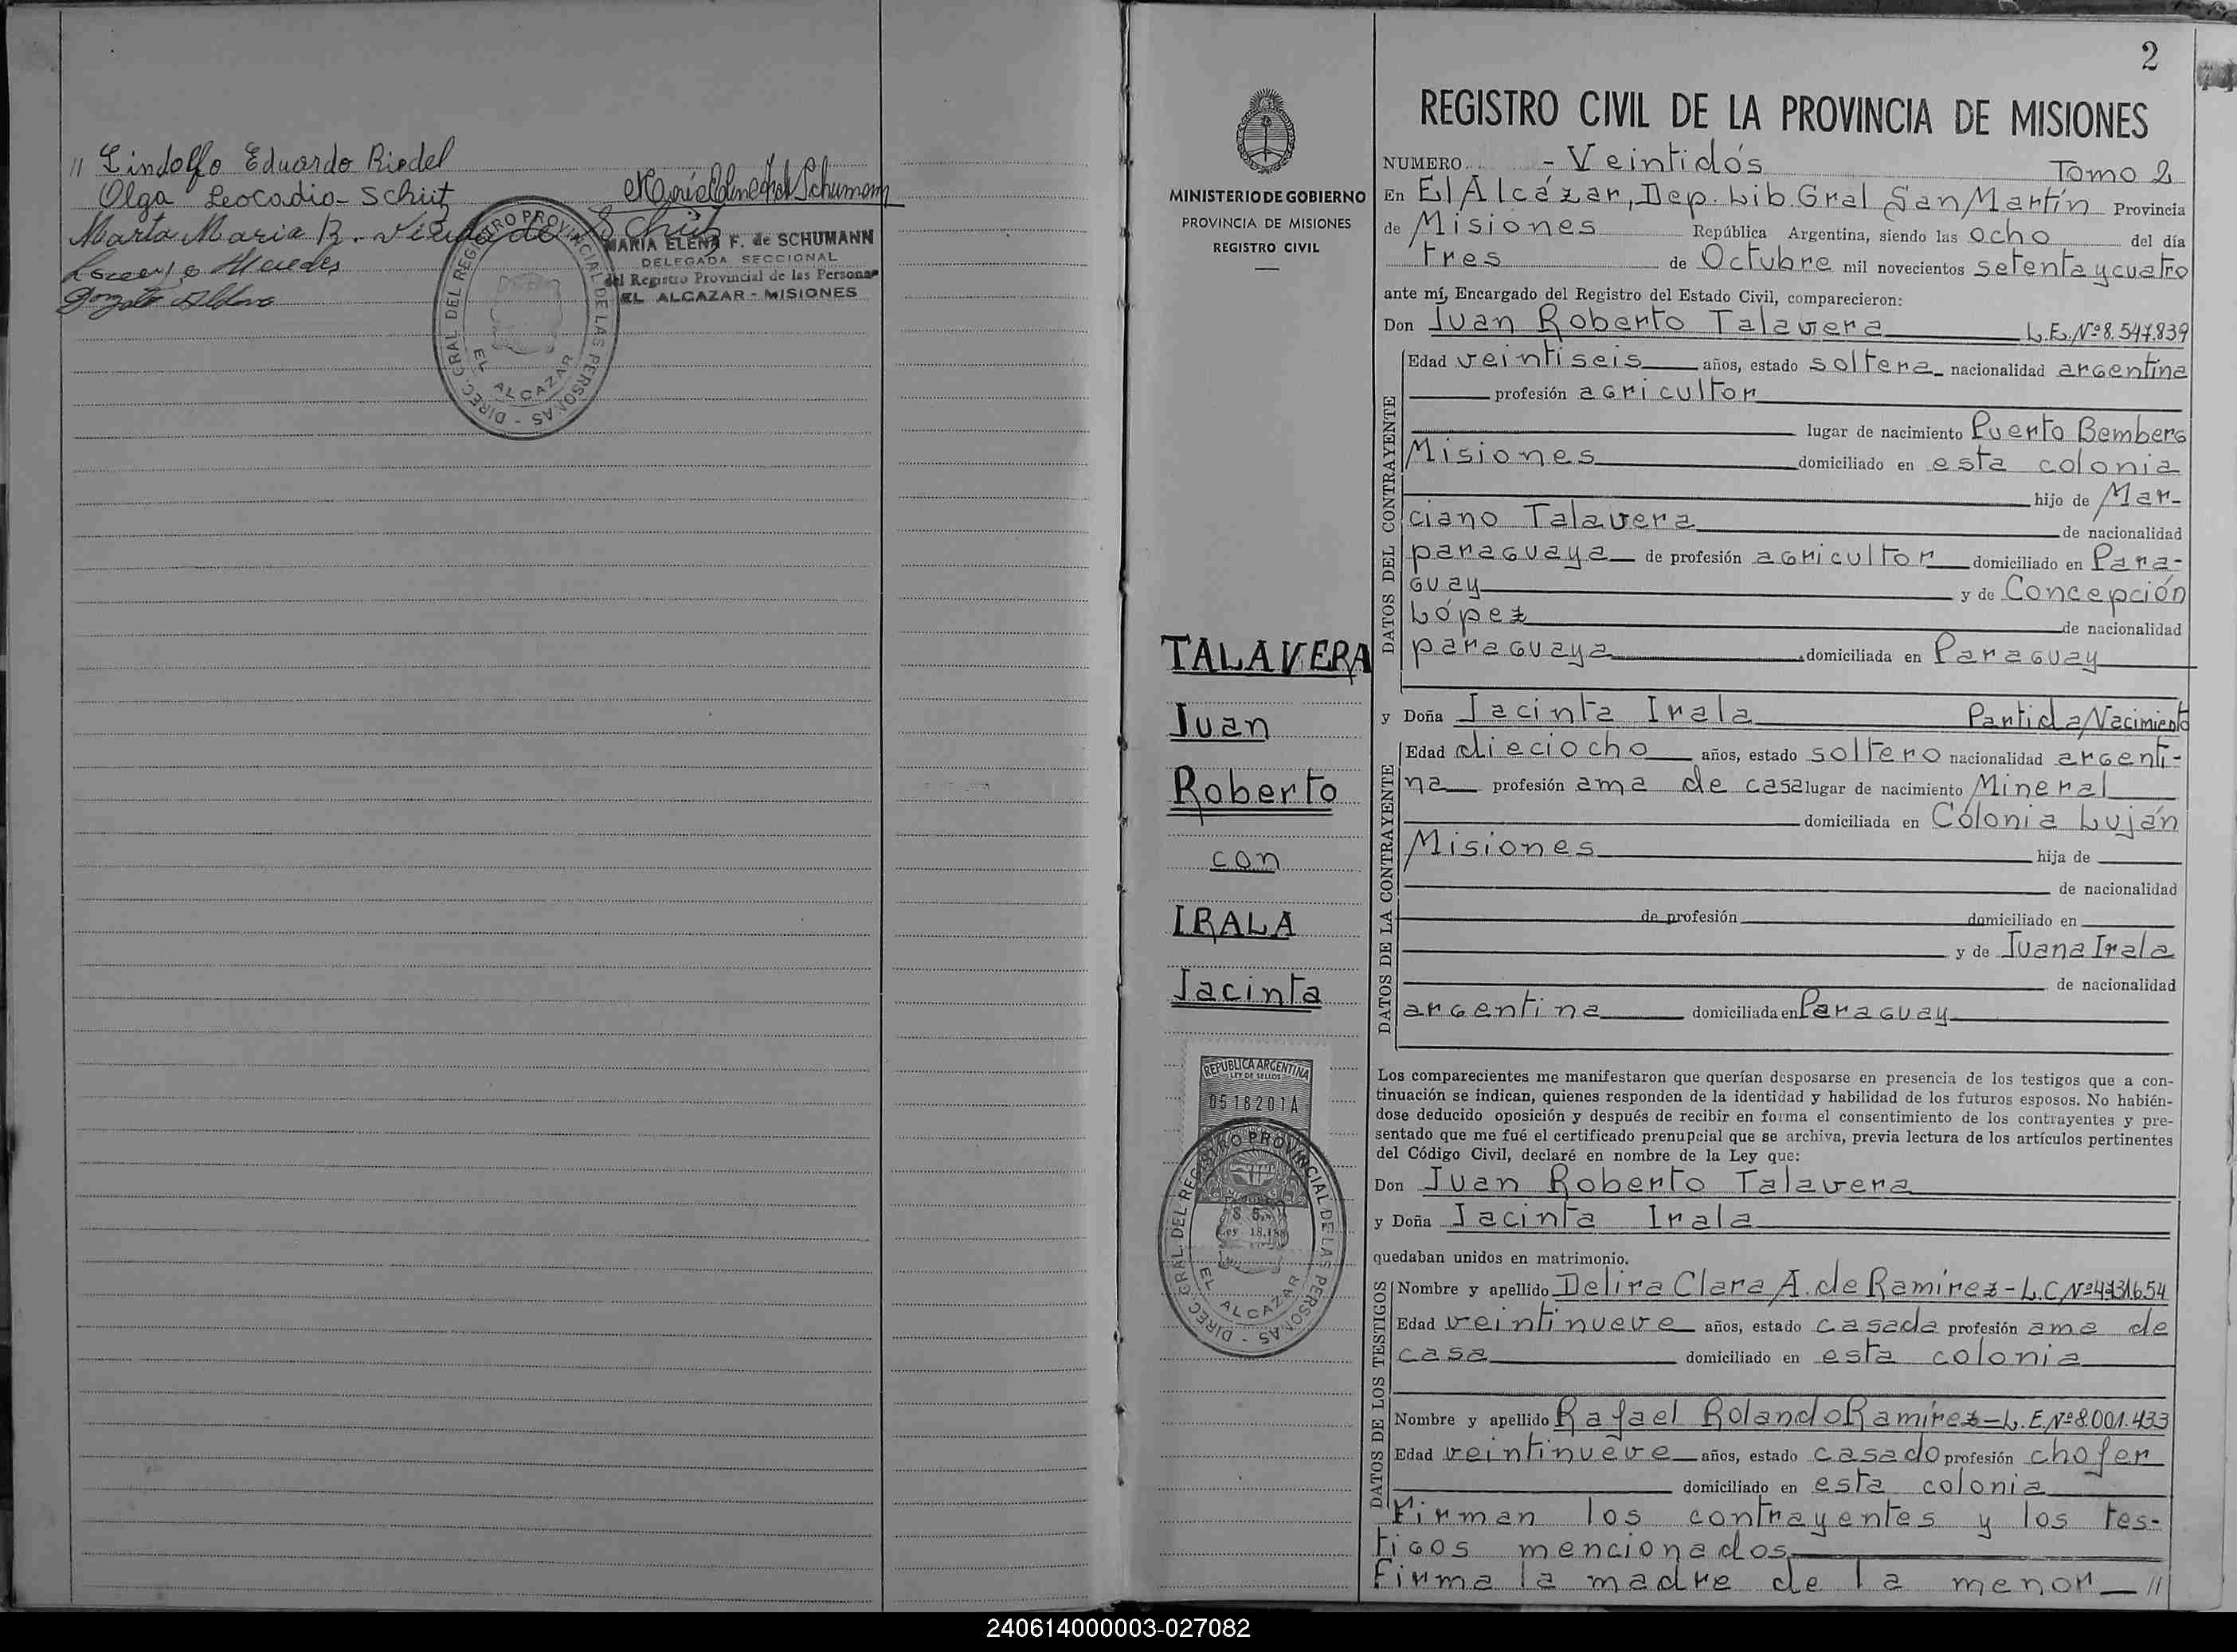 // Lindolfo Eduardo Riedel
Olga Leocadia Schüt
Marta Maria R. Viuda de Schüt
MARIA ELENA F. de SCHUMANN
DELEGADA SECCIONAL
del Registro Provincial de las Personas
EL ALCAZAR - MISIONES
DIREC. GRAL DEL REGISTRO PROVINCIAL DE LAS PERSONAS -
EL ALCAZAR
2
MINISTERIO DE GOBIERNO
PROVINCIA DE MISIONES
REGISTRO CIVIL
TALAVERA
Juan
Roberto
con
IRALA
Jacinta
REPUBLICA ARGENTINA
LEY DE SELLOS
0518201A
DIREC. GRAL DEL REGISTRO PROVINCIAL DE LAS PERSONAS -
EL ALCAZAR
REGISTRO CIVIL DE LA PROVINCIA DE MISIONES
NUMERO - Veintidós Tomo 2
En El Alcázar, Dep. Lib. Gral San Martín Provincia
de Misiones República Argentina, siendo las ocho del día
tres de Octubre mil novecientos setenta y cuatro
ante mí, Encargado del Registro del Estado Civil, comparecieron:
Don Juan Roberto Talavera L.E. Nº 8.547.839
DATOS DEL CONTRAYENTE
Edad veintiseis años, estado soltera nacionalidad argentina
profesión agricultor
lugar de nacimiento Puerto Bemberg
Misiones domiciliado en esta colonia
hijo de Mar-
ciano Talavera de nacionalidad
paraguaya de profesión agricultor domiciliado en Para-
guay y de Concepción
López de nacionalidad
paraguaya domiciliada en Paraguay
y Doña Jacinta Irala Partida Nacimiento
DATOS DE LA CONTRAYENTE
Edad dieciocho años, estado soltero nacionalidad argenti-
na profesión ama de casa lugar de nacimiento Mineral
domiciliada en Colonia Luján
Misiones hija de
de nacionalidad
de profesión domiciliado en
y de Juana Irala
de nacionalidad
argentina domiciliada en Paraguay
Los comparecientes me manifestaron que querían desposarse en presencia de los testigos que a con-
tinuación se indican, quienes responden de la identidad y habilidad de los futuros esposos. No habién-
dose deducido oposición y después de recibir en forma el consentimiento de los contrayentes y pre-
sentado que me fué el certificado prenupcial que se archiva, previa lectura de los artículos pertinentes
del Código Civil, declaré en nombre de la Ley que:
Don Juan Roberto Talavera
y Doña Jacinta Irala
quedaban unidos en matrimonio.
DATOS DE LOS TESTIGOS
Nombre y apellido Delira Clara A. de Ramírez - L.C. Nº
Edad veintinueve años, estado casada profesión ama de
casa domiciliado en esta colonia
Nombre y apellido Rafael Rolando Ramírez - L.E. Nº 8.001.433
Edad veintinueve años, estado casado profesión chofer
domiciliado en esta colonia
Firman los contrayentes y los tes-
tigos mencionados
Firma la madre de la menor //
240614000003-027082